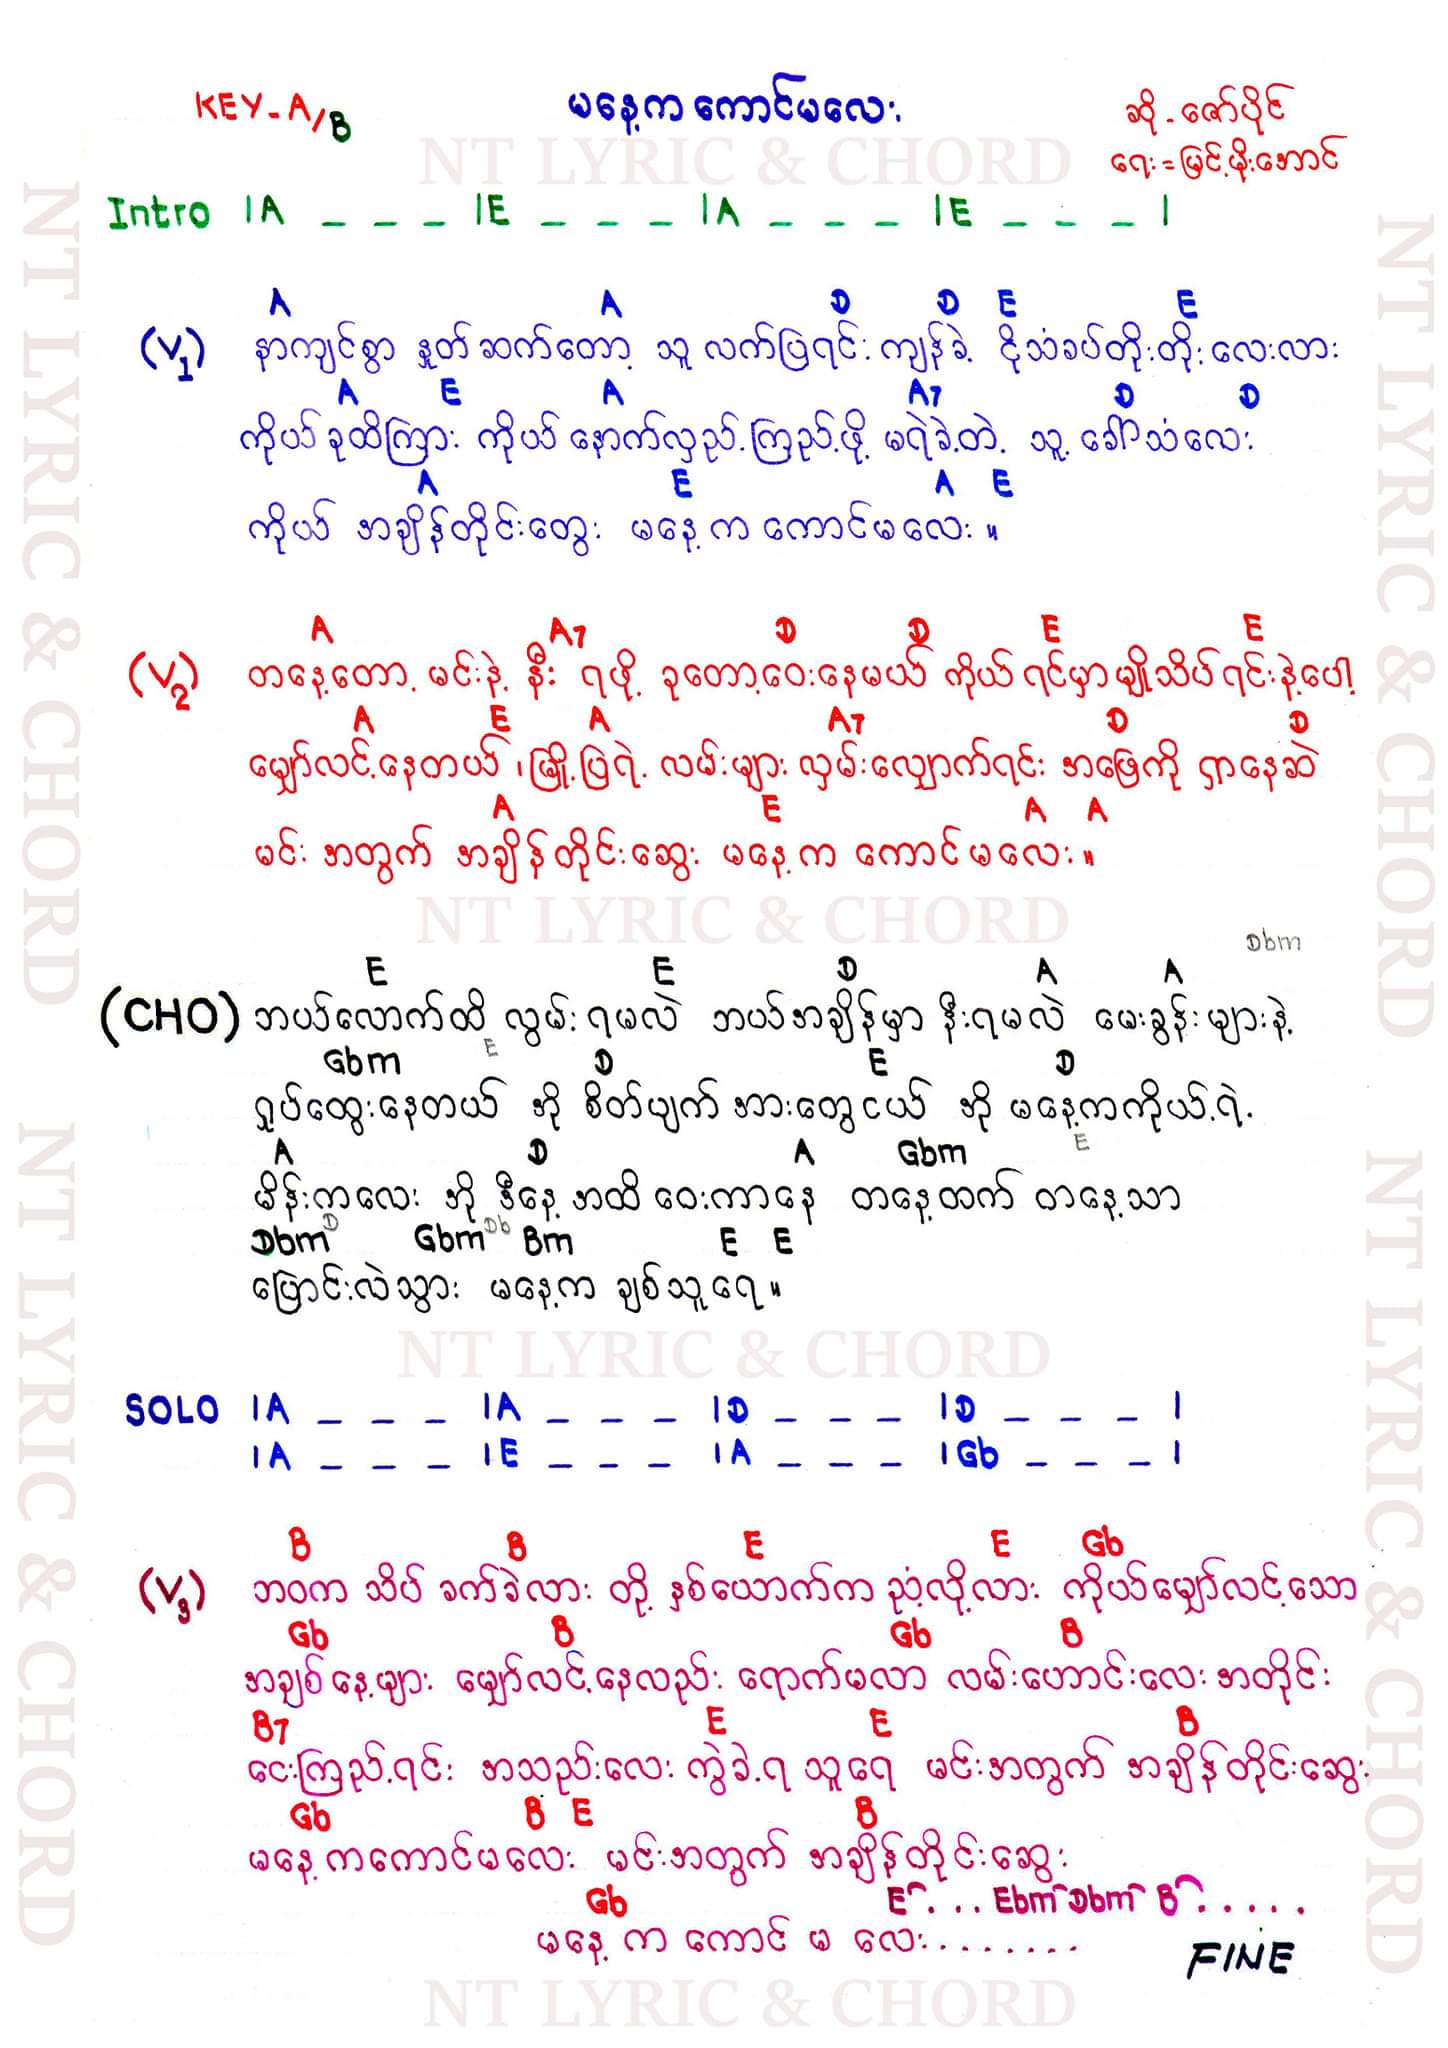 KEY - A/B
မနေ့က ကောင်မလေး
ဆို - ဇော်ပိုင်
ရေး = မြင့်မိုးအောင်
NT LYRIC & CHORD
Intro |A _ _ _ |E _ _ _ |A _ _ _ |E _ _ _ |
A A D D E E
(V1) နာကျင်စွာ နှုတ်ဆက်တော့ သူ လက်ပြရင်း ကျန်ခဲ့ ငိုသံခပ်တိုးတိုးလေးလား
A E A A7 D D
ကိုယ် ခုထိကြား ကိုယ် နောက်လှည့်ကြည့်ဖို့ မရဲခဲ့တဲ့ သူ့ ခေါ်သံလေး
A E A E
ကိုယ် အချိန်တိုင်းတွေး မနေ့က ကောင်မလေး။
A A7 D D E E
(V2) တနေ့တော့ မင်းနဲ့ နီး ရဖို့ ခုတော့ဝေးနေမယ် ကိုယ် ရင်မှာမျိုသိပ်ရင်းနဲ့ပေါ့
A E A A7 D D
မျှော်လင့်နေတယ်၊ မြို့ပြရဲ့ လမ်းများ လှမ်းလျှောက်ရင်း အဖြေကို ရှာနေဆဲ
A E A A
မင်း အတွက် အချိန်တိုင်းဆွေး မနေ့က ကောင်မလေး။
NT LYRIC & CHORD
Dbm
E E D A A
(CHO) ဘယ်လောက်ထိ လွမ်းရမလဲ ဘယ်အချိန်မှာ နီးရမလဲ မေးခွန်းများနဲ့
Gbm E D E D
ရှုပ်ထွေးနေတယ် အို စိတ်ပျက်အားတွေငယ် အို မနေ့ကကိုယ့်ရဲ့
A D A Gbm E
မိန်းကလေး အို ဒီနေ့အထိ ဝေးကာနေ တနေ့ထက် တနေ့သာ
Dbm D Gbm Db Bm E E
ပြောင်းလဲသွား မနေ့က ချစ်သူရေ။
NT LYRIC & CHORD
SOLO |A _ _ _ |A _ _ _ |D _ _ _ |D _ _ _ |
|A _ _ _ |E _ _ _ |A _ _ _ |Gb _ _ _ |
B B E E Gb
(V3) ဘဝက သိပ် ခက်ခဲလား တို့ နှစ်ယောက်က ညံ့လို့လား ကိုယ်မျှော်လင့်သော
Gb B Gb B
အချစ်နေ့များ မျှော်လင့်နေလည်း ရောက်မလာ လမ်းဟောင်းလေးအတိုင်း
B7 E E B
ငေးကြည့်ရင်း အသည်းလေး ကွဲခဲ့ရ သူရေ မင်းအတွက် အချိန်တိုင်းဆွေး
Gb B E B
မနေ့ကကောင်မလေး မင်းအတွက် အချိန်တိုင်းဆွေး
Gb E ... Ebm Dbm B .....
မနေ့ က ကောင် မ လေး........
FINE
NT LYRIC & CHORD
NT LYRIC & CHORD
NT LYRIC & CHORD
NT LYRIC & CHORD
NT LYRIC & CHORD